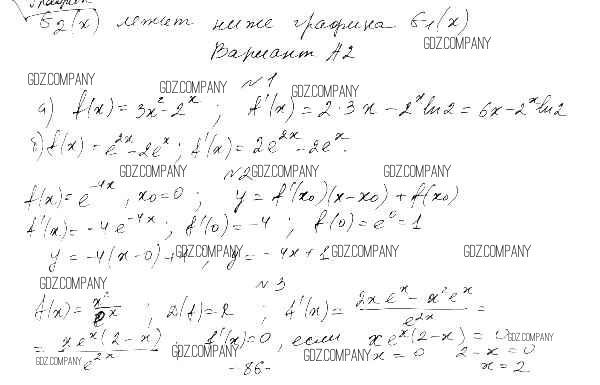 б2(x) лежит ниже графика б1(x)
GDZ.COMPANY
Вариант А2
GDZ.COMPANY GDZ.COMPANY №1 GDZ.COMPANY
а) f(x) = 3x² - 2^x ; f'(x) = 2·3x - 2^x ln2 = 6x - 2^x ln2
б) f(x) = e^{2x} - 2e^x ; f'(x) = 2e^{2x} - 2e^x.
№2 GDZ.COMPANY GDZ.COMPANY GDZ.COMPANY
f(x) = e^{-4x}, x0 = 0 ; y = f'(x0)(x-x0) + f(x0)
f'(x) = -4e^{-4x} ; f'(0) = -4 ; f(0) = e^0 = 1
y = -4(x-0)+1 ; y = -4x+1
GDZ.COMPANY GDZ.COMPANY GDZ.COMPANY
GDZ.COMPANY №3
f(x) = x²/e^x ; D(f) = R ; f'(x) = (2xe^x - x²e^x)/e^{2x} =
= xe^x(2-x)/e^{2x} ; f'(x) = 0, если xe^x(2-x) = 0
GDZ.COMPANY GDZ.COMPANY GDZ.COMPANY GDZ.COMPANY
x = 0 2-x = 0
-86- x = 2